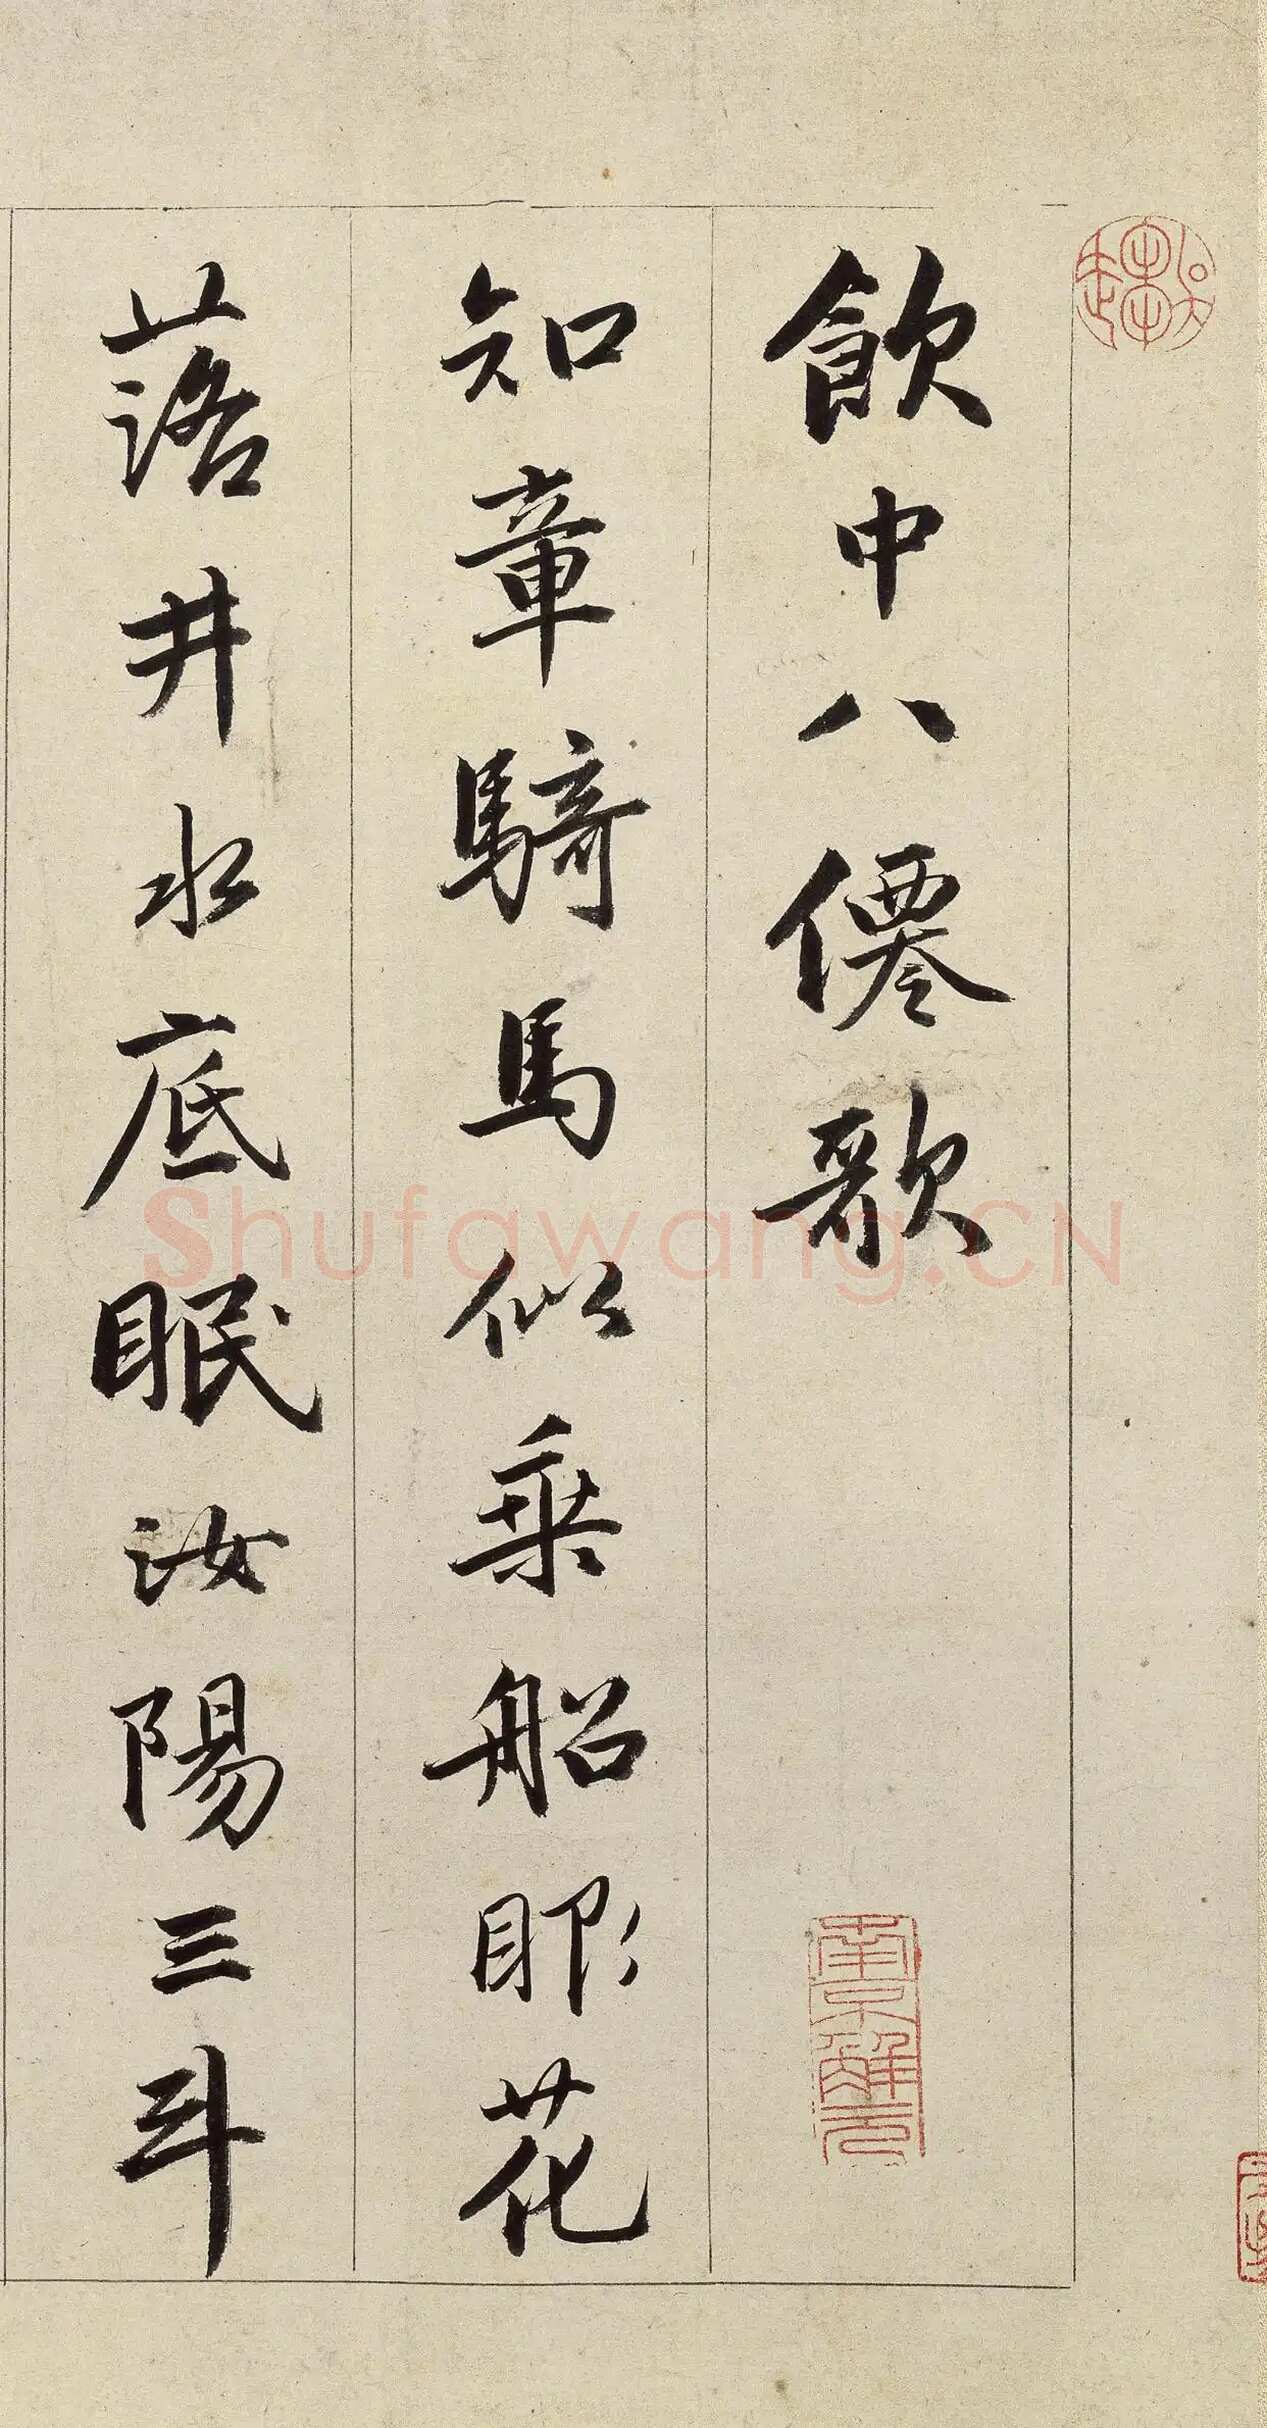 飲中八僊歌
知章騎馬似乗船眼花
落井水底眠汝陽三斗
南京解元
Shufawang.CN